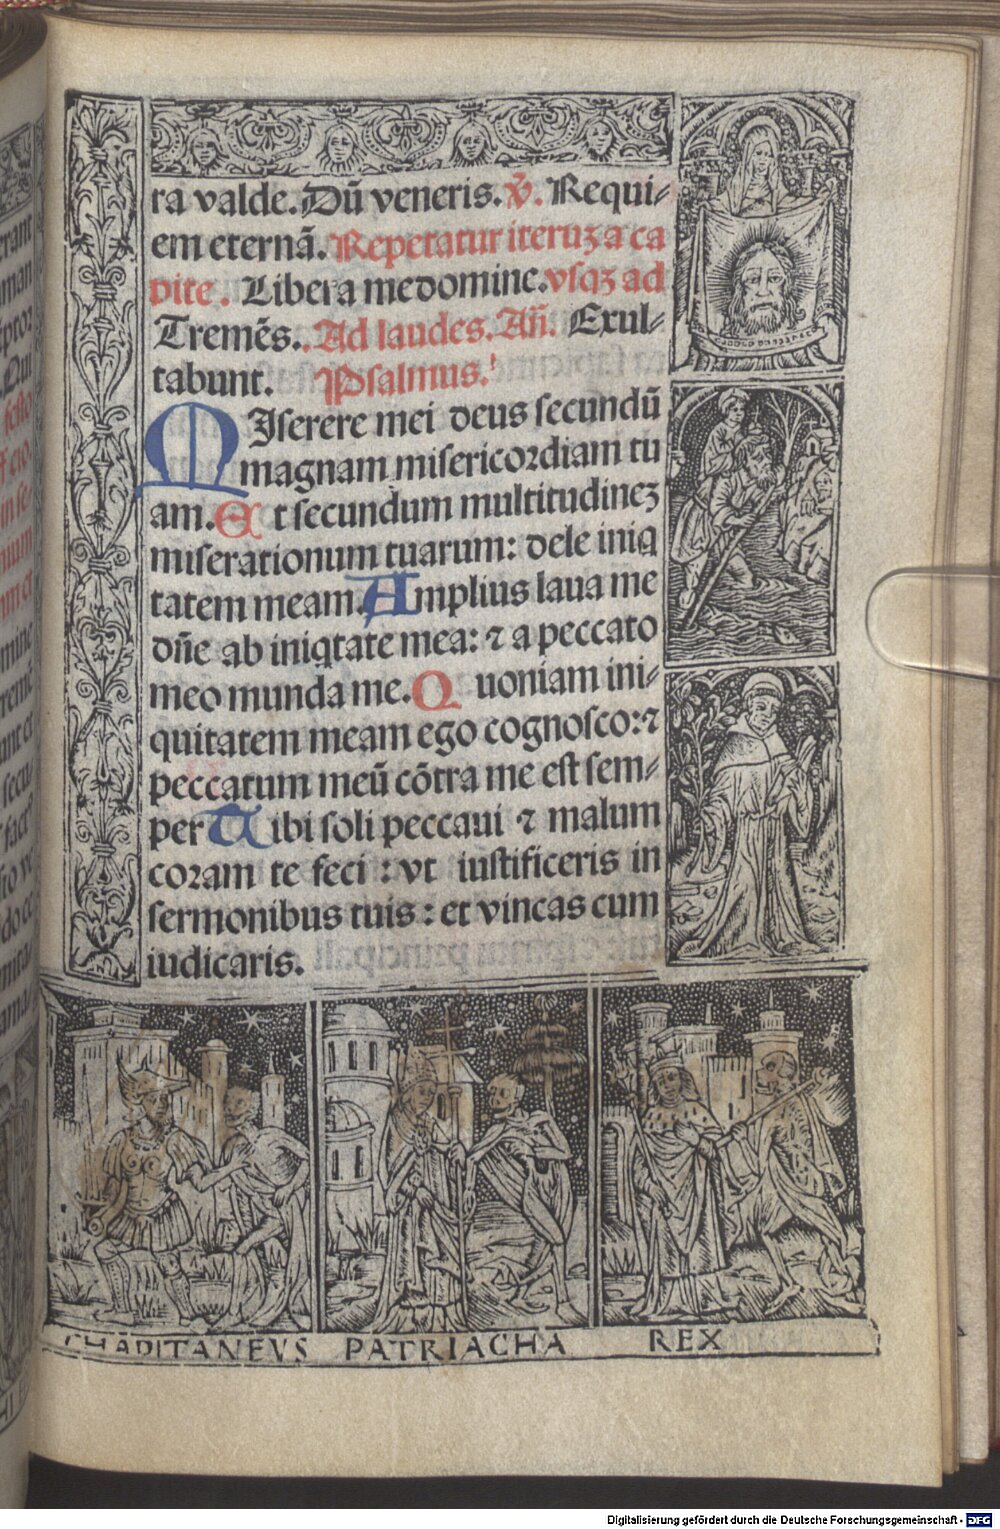 ra valde. Dū veneris. ℣. Requi⸗
em eternā. Repetatur iteruꝫ a ca
pite. Libera me domine. vsqꝫ ad
Tremēs. Ad laudes. Añ. Exul⸗
tabunt. Psalmus.
MIserere mei deus secundū
magnam misericordiam tu
am. Et secundum multitudineꝫ
miserationum tuarum: dele iniq
tatem meam. Amplius laua me
dñe ab iniqtate mea: ⁊ a peccato
meo munda me. Quoniam ini⸗
quitatem meam ego cognosco: ⁊
peccatum meū cōtra me est sem⸗
per Tibi soli peccaui ⁊ malum
coram te feci: vt iustificeris in
sermonibus tuis: et vincas cum
iudicaris.
CHAPITANEVS PATRIACHA REX
Digitalisierung gefördert durch die Deutsche Forschungsgemeinschaft - DFG